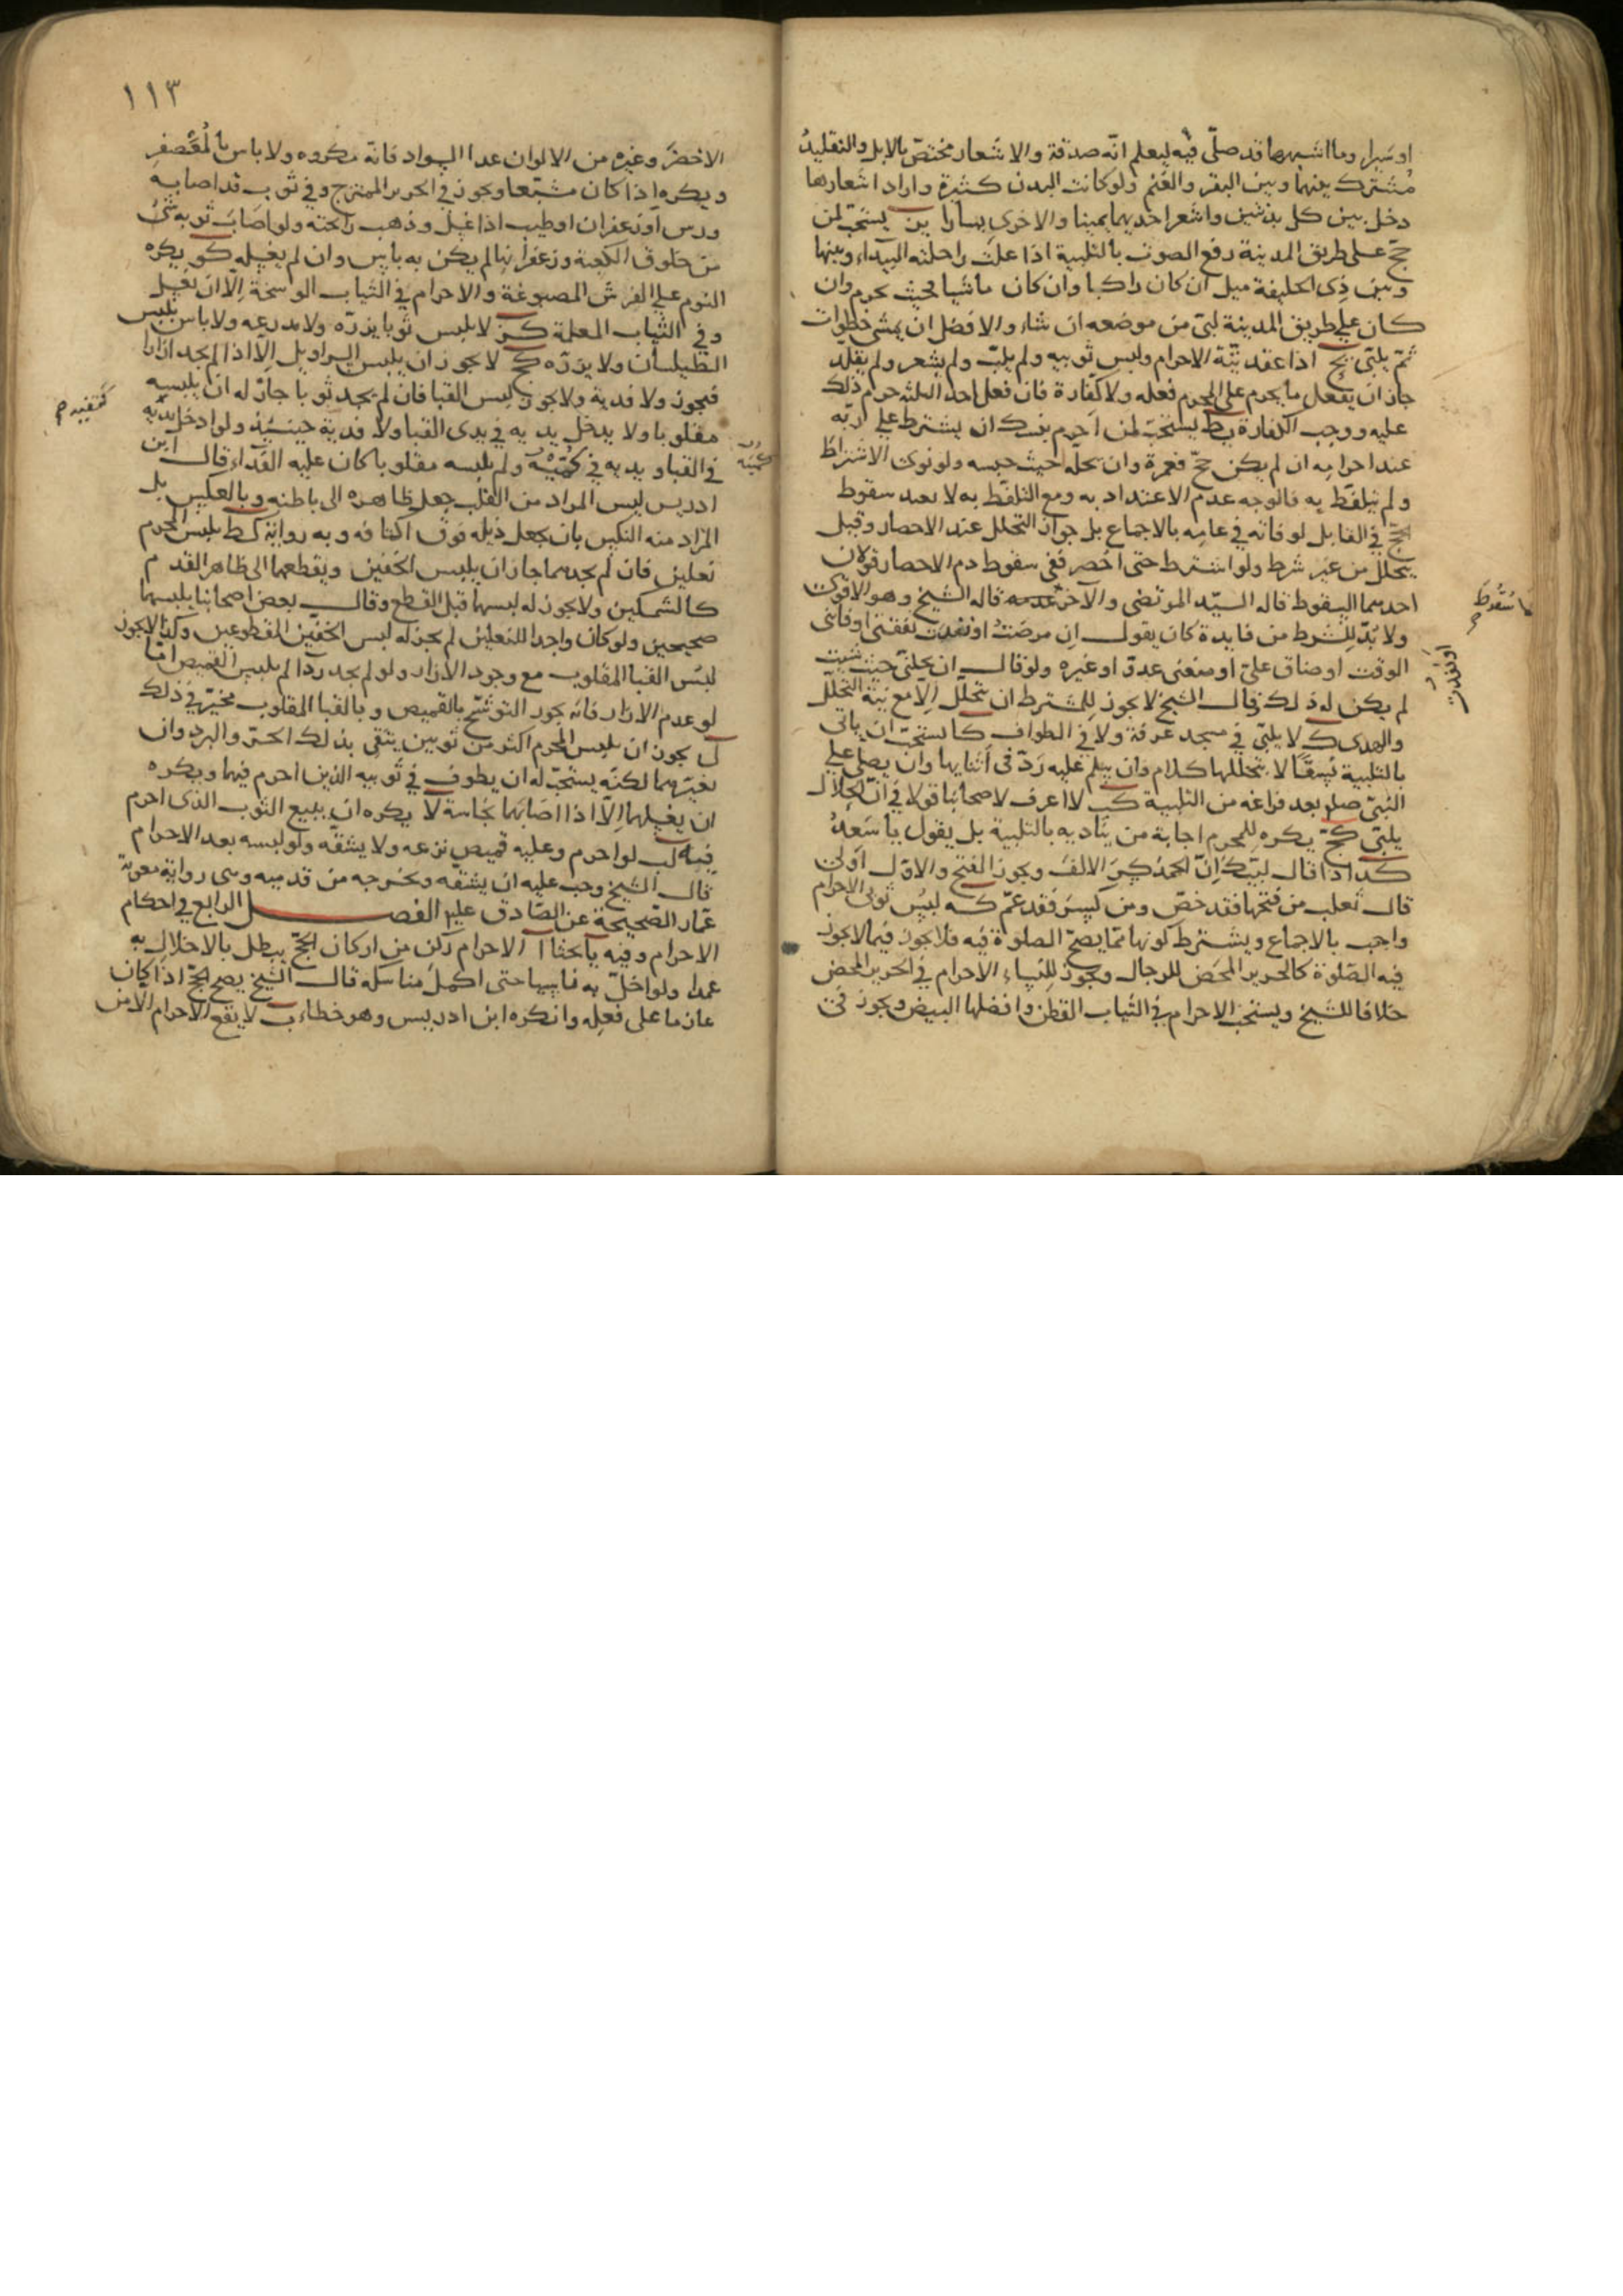 او سَيرا وما اشبههما قد صلّى فيه ليعلم انّه صدقة والاشعار مختصّ بالابل والتقليدُ
مُشترك بينها وبين البقر والغنم ولو كانت البدن كثيرة واراد اشعارها
دخل بين كل بدنتين واشعر احديهما يمينا والاخرى يسارا ين يستحبّ لمن
حجّ على طريق المدينة رفع الصوت بالتلبية اذا علت راحلته البيداء وبينها
وبين ذى الحليفة ميل ان كان راكبا وان كان ماشيا فحيث يحرم وان
كان على طريق المدينة لبّى من موضعه ان شاء والافضل ان يمشى خطوات
ثمّ يلبّى يح اذا عقد نيّة الاحرام ولبس ثوبيه ولم يلبّ ولم يشعر ولم يقلّد
جاز ان يفعل ما يحرم على المحرم فعله ولا كفّارة فان فعل احد الثلثه حرم ذلك
عليه ووجب الكفارة يط يستحبّ لمن احرم بنسك ان يشترط على ربّه
عند احرامِه ان لم يكن حجّ فعمرة وان يحلّه حيث حبسه ولو نوى الاشتراط
ولم يتلفّظ به فالوجه عدم الاعتداد به ومع التلفّظ به لا يعيد سقوط
الحجّ فى القابل لو فاته فى عامِه بالاجماع بل جواز التحلل عند الاحصار وقيل
يتحلّل من غير شرط ولو اشترط حتى اُحصِر ففى سقوط دم الاحصار قولان
احدهما السقوط قاله السيّد المرتضى والآخر عدمه قاله الشيخ وهو الاقوى
ما سُقوط
ولا بُدّ للشرط من فايدة كان يقول ان مرضتُ او نفدت نفقتى او فاتنى
او نفدتْ
الوقت او ضاق علىّ او منعنى عدوّ او غيره ولو قال ان تحلّنى حيث شيت
لم يكن له ذلك وقال الشيخ لا يجوز للمشترط ان يتحلّل الا مع نيّة التحلّل
والهدى ك لا يلبّى فى مسجد عرفة ولا فى الطواف كا يستحبّ ان ياتى
بالتلبية نسقًا لا يتخللها كلام وان سلم عليه رَدّ فى اثنايها وان يصلى على
النبىّ صلع بعد فراغه من التلبية كب لا اعرف لاصحابنا قولا فى انّ الحلال
يلبّى كج يكره للمحرم اجابة من يناديه بالتلبية بل يقول يا سعدُ
كد اذا قال لبّيك اِنّ الحمدَ كسرَ الالف ويجوز الفتح والاوّل اَولى
قال ثعلب من فتحها فقد خصّ ومن كسرَ فقد عمّ كه لبس ثوبى الاحرام
واجب بالاجماع ويشترط كونها ممّا يصحّ الصلوة فيه فلا يجوز فيما لا يجوز
فيه الصّلوة كالحرير المحض للرجال ويجوز للنساء الاحرام فى الحرير المحض
خلافا للشيخ ويستحبّ الاحرام فى الثياب القطن وافضلها البيض ويجوز فى
١١٣
الاخضر وغيره من الالوان عدا السواد فانّه مكروه ولا باس بالمُعَصفر
ويكره اذا كان مشبّعا ويجوز فى الحرير الممتزج وفى ثوب قد اصابه
ورس او زعفران او طيب اذا غسل وذهب رايحته ولو اصابَ ثوبه شئ
من خلوق الكعبة وزعفرانها لم يكن به باس وان لم يغسله كو يكره
النوم على الفرش المصبوغة والاحرام فى الثياب الوسخة اِلّا ان تغسل
وفى الثياب المعلمة كز لا يلبس ثوبا يزرّه ولا مدرعه ولا باس بلبس
الطيلسان ولا يزرّه كح لا يجوز ان يلبس السراويل اِلّا اذا لم يجد ازارا
فيجوز ولا فدية ولا يجوز لبس القبا فان لم يجد ثوبا جاز له ان يلبسه
مقلوبا ولا يدخل يديه فى يدى القبا ولا فدية حينئذٍ ولو ادخل يديه
فى القبا ويديه فى كُمَّيْه ولم يلبسه مقلوبا كان عليه الفداء قال ابن
كُمّيه
ادريس ليس المراد من القلب جعل ظاهره الى باطنه وبالعكس بل
المراد منه النكس بان يجعل ذيله فوق اكتافه وبه رواية كط يلبس المحرم
نعلين فان لم يجدهما جاز ان يلبس الخفين ويقطعهما الى ظاهر القدم
كالشمكين ولا يجوز له لبسهما قبل القطع وقال بعض اصحابنا يلبسهما
صحيحين ولو كان واجدا للنعلين لم يجز له لبس الخفّين المقطوعين وكذا لا يجوز
لبس القبا المقلوب مع وجود الازار ولو لم يجد ردآا لم يلبس القميص امّا
لو عدم الازار فانه يجوز التوشّح بالقميص وبالقبا المقلوب مخيّر فى ذلك
ل يجوز ان يلبس المحرم اكثر من ثوبين يتقى بذلك الحرّ والبرد وان
يغيّرهما لكنّه يستحبّ له ان يطوف فى ثوبيه الذين احرم فيهما ويكره
ان يغسلهما اِلّا اذا اصابهما نجاسة لا يكره ان يبيع الثوب الذى احرم
فيه لب لو احرم وعليه قميص نزعه ولا يشقّه ولو لبسه بعد الاحرام
قال الشيخ وجب عليه ان يشقّه ويخرجه من قدميه وهى رواية معوية
عمّار الصّحيحة عن الصّادق عليه الفصل الرابع فى احكام
الاحرام وفيه يا بحثا ا الاحرام ركن من اركان الحجّ يبطل بالاخلال به
عمدا ولو اخلّ به ناسيها حتى اكمل مناسكه قال الشيخ يصح الحجّ اذا كان
عازما على فعله وانكره ابن ادريس وهو خطاء ب لا يقع الاحرام الا من